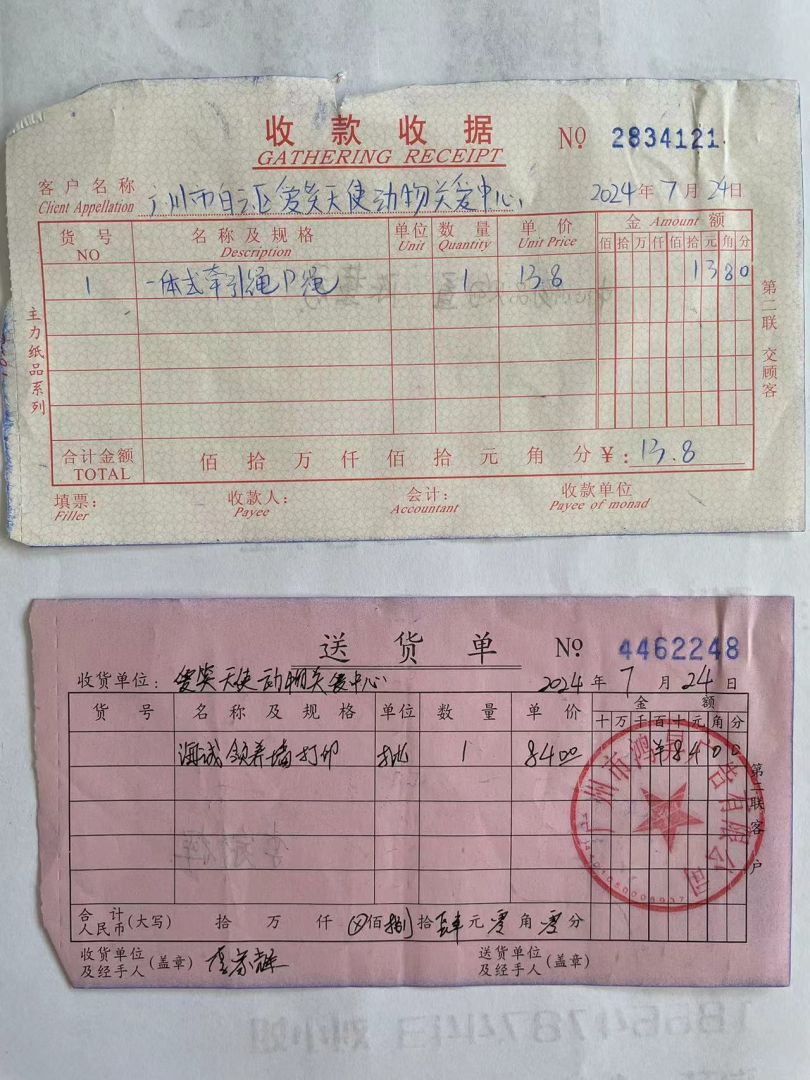 收款收据
GATHERING RECEIPT
№ 2834121
客户名称 广州市白云区爱笑天使动物关爱中心
Client Appellation
2024年7月24日
货号 名称及规格 单位 数量 单价 金 Amount 额
NO Description Unit Quantity Unit Price 佰拾万仟佰拾元角分
1 一体式牵引绳P绳 1 13.8 1380
主力纸品系列
第二联 交顾客
合计金额 佰 拾 万 仟 佰 拾 元 角 分 ¥: 13.8
TOTAL
填票: 收款人: 会计: 收款单位
Filler Payee Accountant Payee of monad
送货单
№ 4462248
收货单位: 爱笑天使动物关爱中心 2024年7月24日
货号 名称及规格 单位 数量 单价 金额
十万千百十元角分
领养墙打印 批 1 8400 ¥8400
第二联客户
广州市鸿 广告有限公司
合计
人民币 (大写) 拾 万 仟 ⊗佰 捌拾 肆元 零角 零分
收货单位
及经手人 (盖章)
送货单位
及经手人 (盖章)